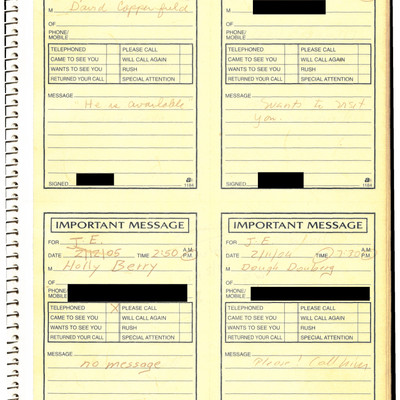 M David Copperfield
OF
PHONE/
MOBILE
TELEPHONED PLEASE CALL
CAME TO SEE YOU WILL CALL AGAIN
WANTS TO SEE YOU RUSH
RETURNED YOUR CALL SPECIAL ATTENTION
MESSAGE
"He is available"
SIGNED
1184
M
OF
PHONE/
MOBILE
TELEPHONED PLEASE CALL
CAME TO SEE YOU WILL CALL AGAIN
WANTS TO SEE YOU RUSH
RETURNED YOUR CALL SPECIAL ATTENTION
MESSAGE
Wants to visit
you.
SIGNED
1184
IMPORTANT MESSAGE
FOR J.E.
DATE 2/12/05 TIME 2:50 A.M. P.M.
M Holly Berry
OF
PHONE/
MOBILE
TELEPHONED X PLEASE CALL
CAME TO SEE YOU WILL CALL AGAIN
WANTS TO SEE YOU RUSH
RETURNED YOUR CALL SPECIAL ATTENTION
MESSAGE
no message
IMPORTANT MESSAGE
FOR J.E.
DATE TIME A.M. P.M.
M Dough
OF
PHONE/
MOBILE
TELEPHONED PLEASE CALL
CAME TO SEE YOU WILL CALL AGAIN
WANTS TO SEE YOU RUSH
RETURNED YOUR CALL SPECIAL ATTENTION
MESSAGE
Please! Call